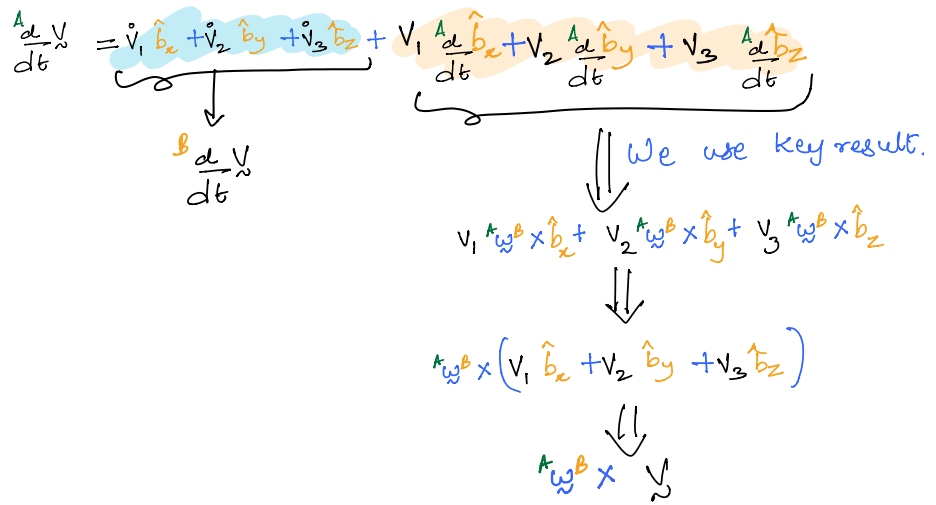 ᴬd/dt V̰ = V̇₁ b̂ₓ + V̇₂ b̂y + V̇₃ b̂z + V₁ ᴬd/dt b̂ₓ + V₂ ᴬd/dt b̂y + V₃ ᴬd/dt b̂z
ᴮd/dt V̰
We use key result.
V₁ ᴬω̰ᴮ × b̂ₓ + V₂ ᴬω̰ᴮ × b̂y + V₃ ᴬω̰ᴮ × b̂z
ᴬω̰ᴮ × (V₁ b̂ₓ + V₂ b̂y + V₃ b̂z)
ᴬω̰ᴮ × V̰